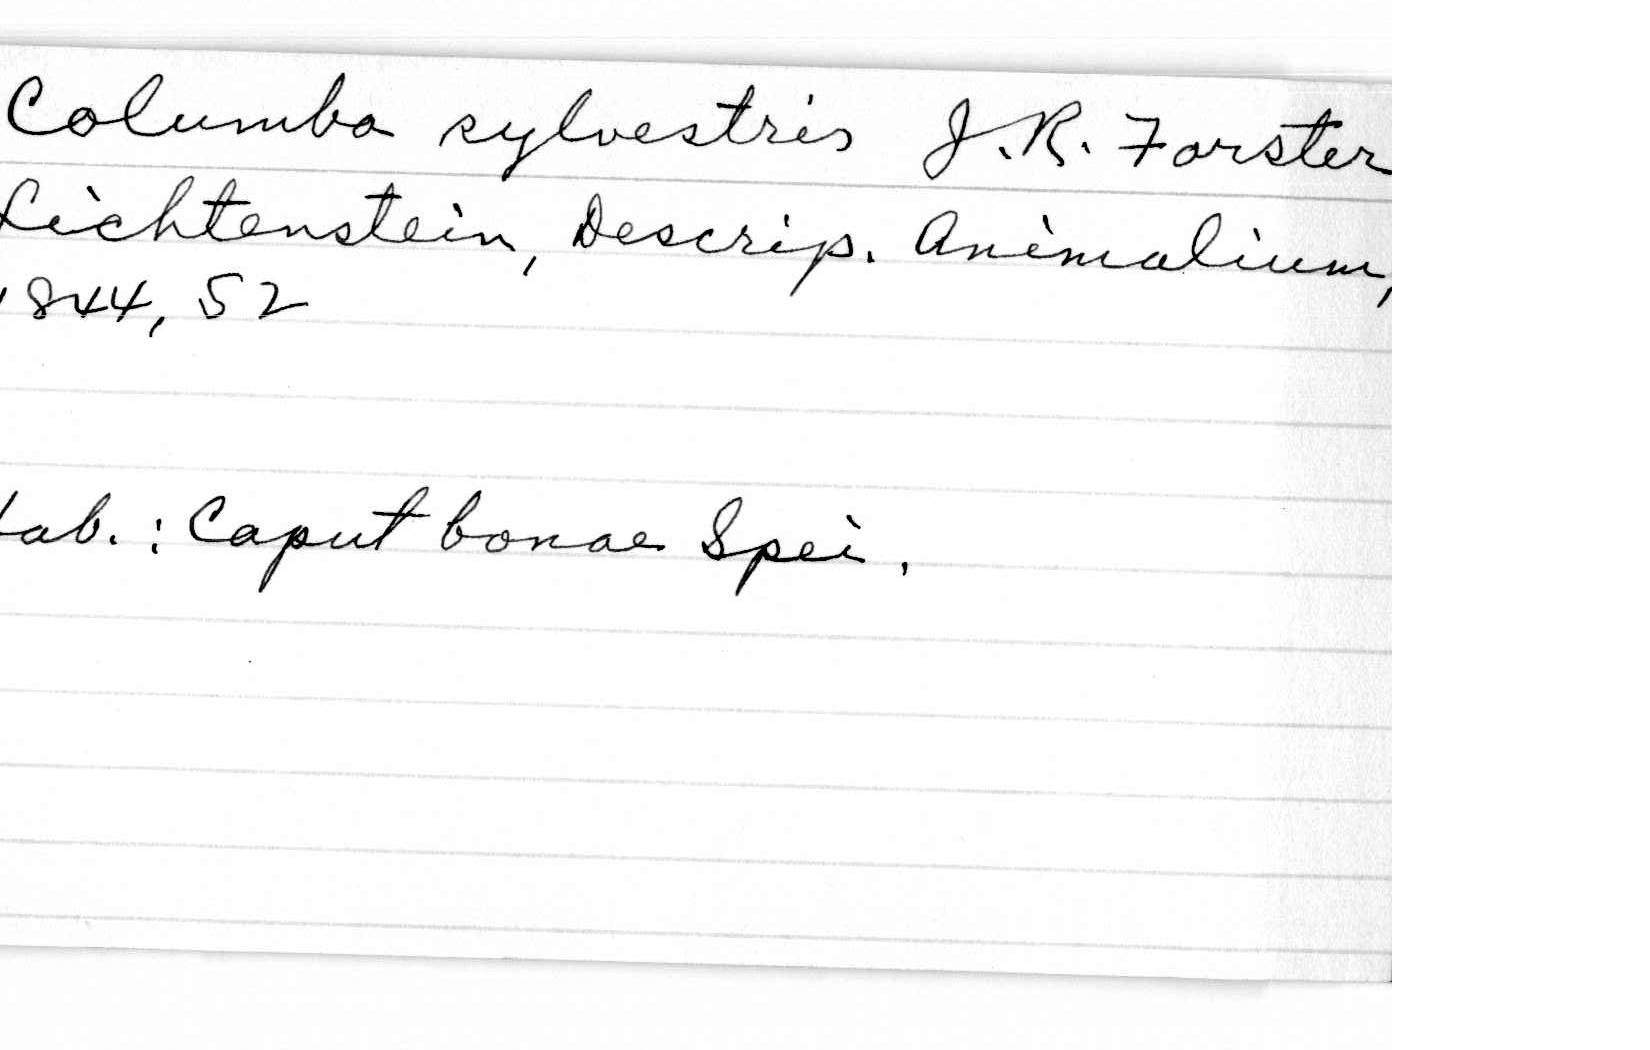 Columba sylvestris J.R. Forster
Lichtenstein, Descrip. Animalium,
1844, 52
Hab. : Caput bonae Spei.